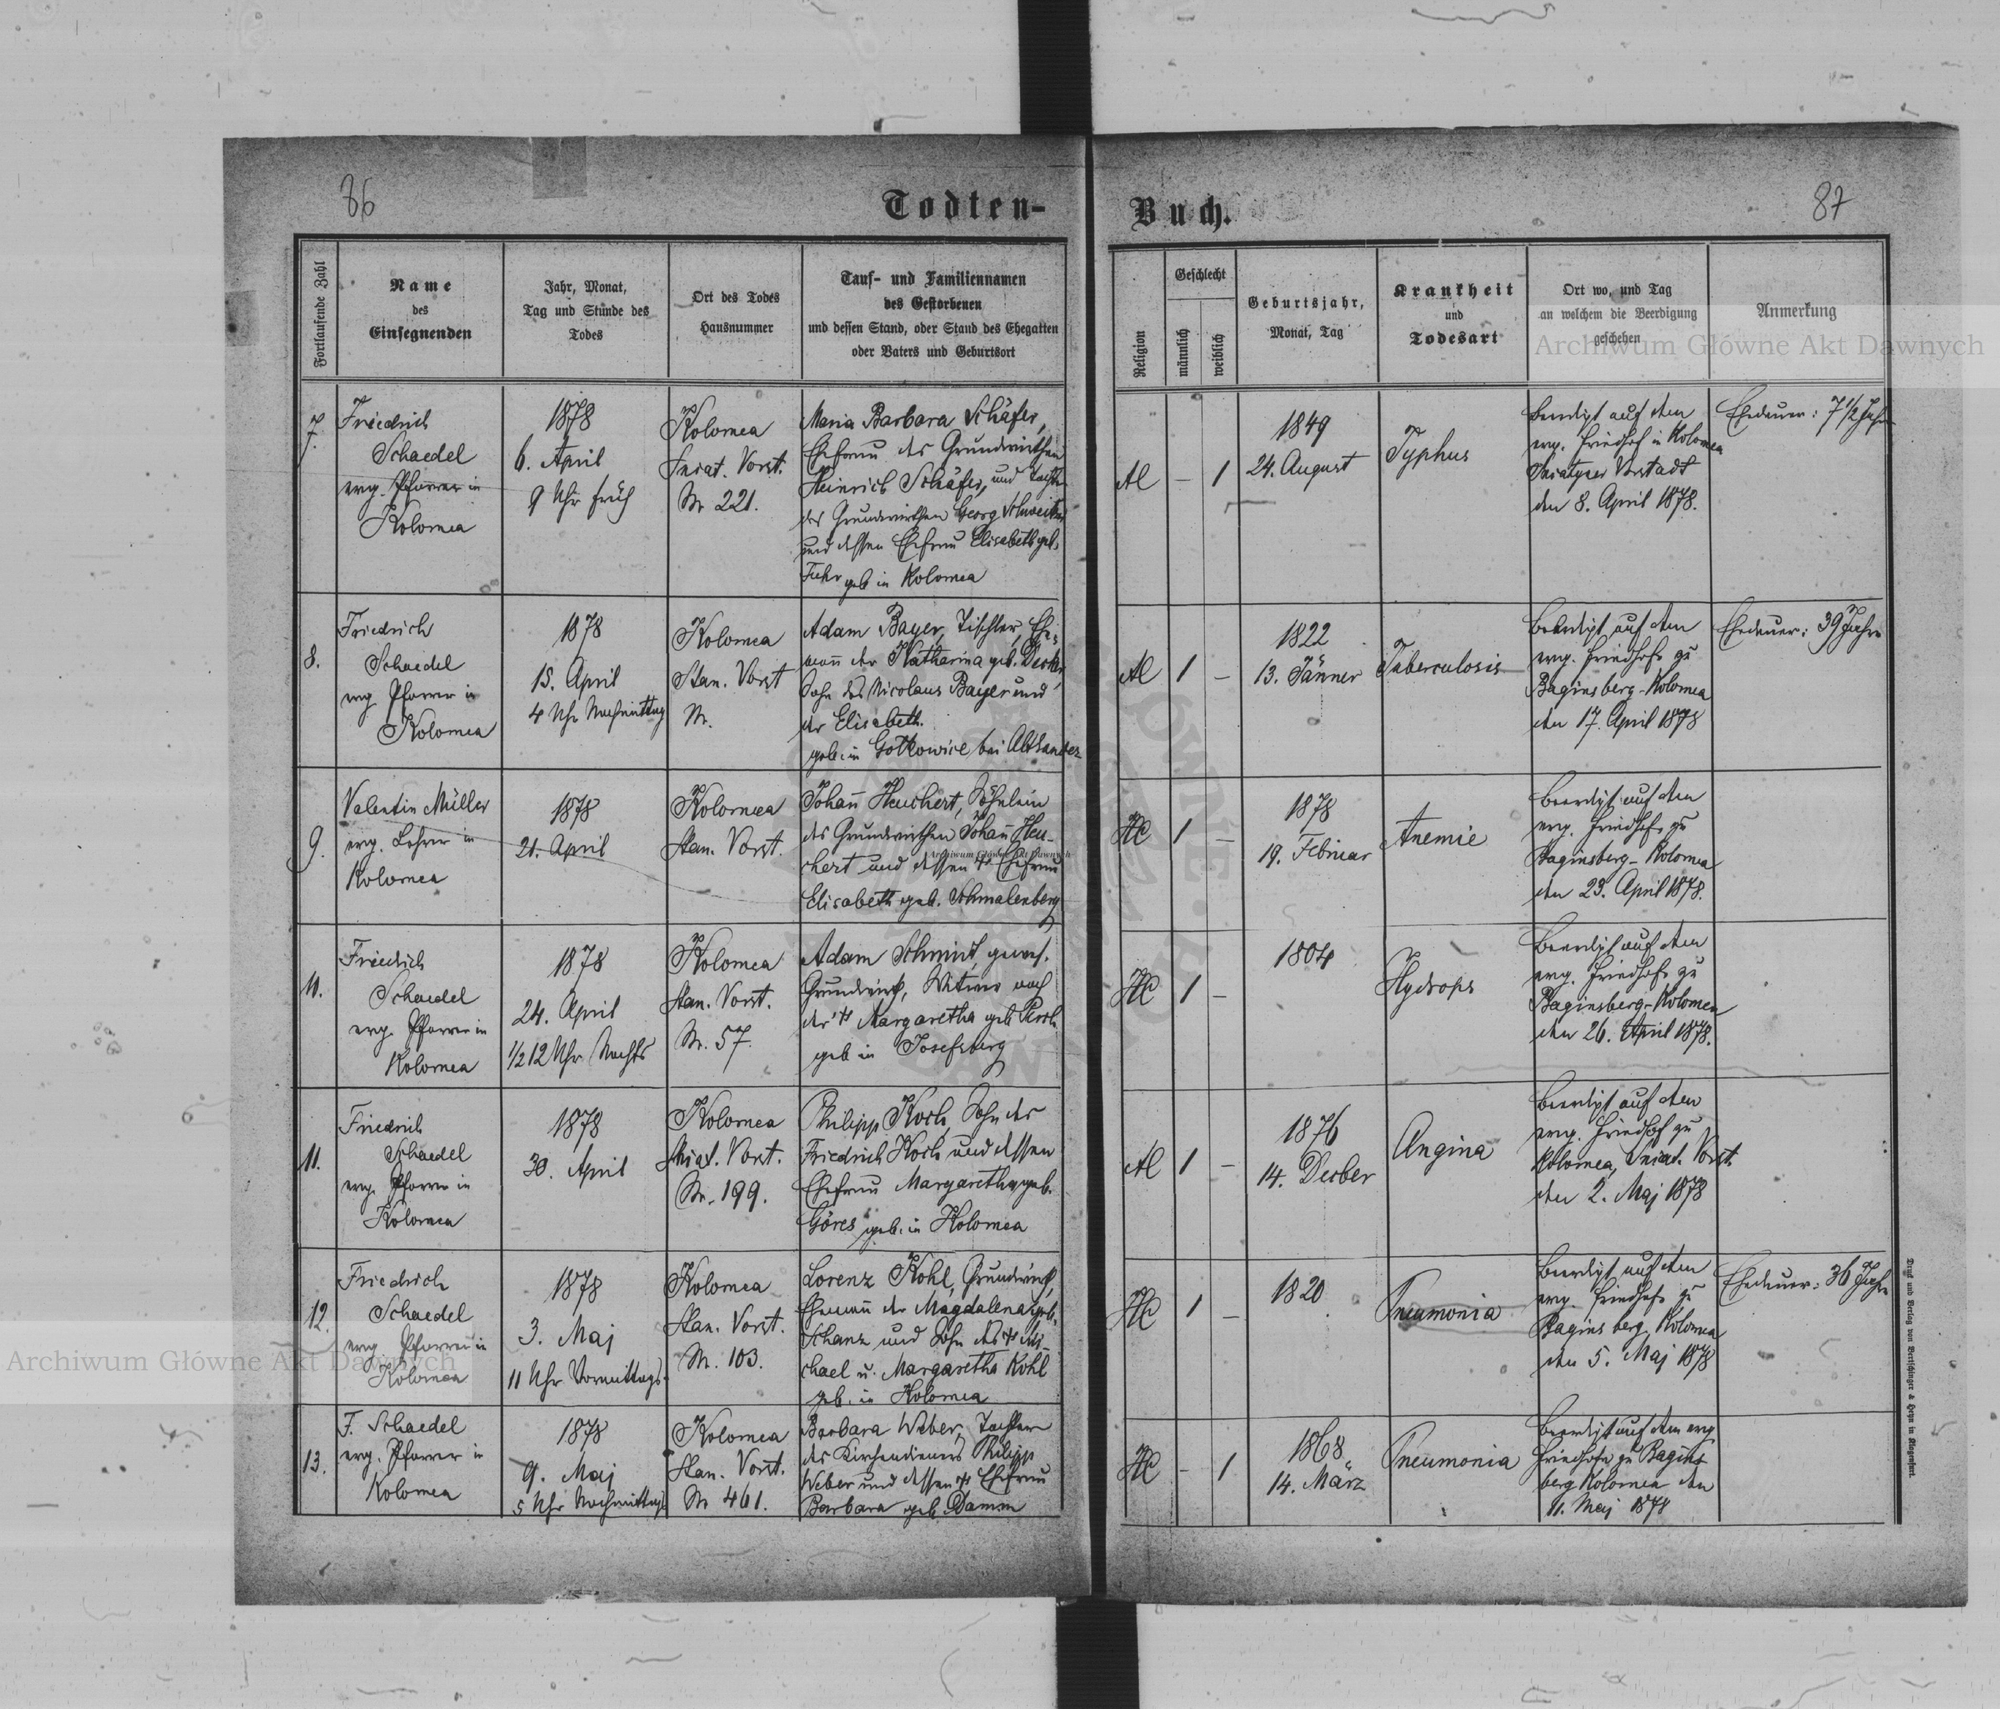 86
Todten-
Buch.
87
Fortlaufende Zahl
Name
des
Einsegnenden
Jahr, Monat,
Tag und Stunde des
Todes
Ort des Todes
Hausnummer
Tauf- und Familiennamen
des Gestorbenen
und dessen Stand, oder Stand des Ehegatten
oder Vaters und Geburtsort
Religion
Geschlecht
männlich
weiblich
Geburtsjahr,
Monat, Tag
Krankheit
und
Todesart
Ort wo, und Tag
an welchem die Beerdigung
geschehen
Anmerkung
Archiwum Główne Akt Dawnych
7.
Friedrich
Schaedel
evg. Pfarrer in
Kolomea
1878
6. April
9 Uhr früh
Kolomea
Sniat. Vorst.
Nr. 221.
Maria Barbara Schäfer,
Ehefrau des Grundwirthen
Heinrich Schäfer, und Tochter
des Grundwirthen Georg Schweitzer
und dessen Ehefrau Elisabeth geb.
Fuhr geb in Kolomea
AC
–
1
1849
24. August
Typhus
Beerdigt auf dem
evg. Friedhof in Kolomea
Sniatyner Vorstadt
den 8. April 1878.
Ehedauer: 7 1/2 Jahre
8.
Friedrich
Schaedel
evg Pfarrer in
Kolomea
1878
15. April
4 Uhr Nachmittag
Kolomea
Stan. Vorst
Nr.
Adam Bayer, Tischler, Ehe-
mann der Katharina geb.
Sohn des Nicolaus Bayer und
der Elisabeth.
geb. in Gołkowice bei Altsandez
AC
1
–
1822
13. Jänner
Tuberculosis
Beerdigt auf dem
evg. Friedhofe zu
Baginsberg-Kolomea
den 17. April 1878
Ehedauer: 39 Jahre
9.
Valentin Müller
evg. Lehrer in
Kolomea
1878
21. April
Kolomea
Stan. Vorst.
Johann Heuchert, Söhnlein
des Grundwirthen Johann Heu-
chert und dessen Ehefrau
Elisabeth geb. Schmalenberg
HC
1
–
1878
19. Februar
Anemie
Beerdigt auf dem
evg. Friedhofe zu
Baginsberg-Kolomea
den 23. April 1878.
Archiwum Główne Akt Dawnych
10.
Friedrich
Schaedel
evg. Pfarrer in
Kolomea
1878
24. April
1/2 12 Uhr Nachts
Kolomea
Stan. Vorst.
Nr. 57.
Adam Schmidt, gewes.
Grundwirth, Witwer nach
der Margaretha geb
geb in Josefsberg
HC
1
–
1804
Hydrops
Beerdigt auf dem
evg. Friedhofe zu
Baginsberg-Kolomea
den 26. April 1878.
11.
Friedrich
Schaedel
evg. Pfarrer in
Kolomea
1878
30. April
Kolomea
Sniat. Vorst.
Nr. 199.
Philipp Koch, Sohn des
Friedrich Koch und dessen
Ehefrau Margaretha geb.
Göres geb. in Kolomea
AC
1
–
1876
14. Decber
Angina
Beerdigt auf dem
evg. Friedhof zu
Kolomea, Sniat. Vorst
den 2. Maj 1878
12.
Friedrich
Schaedel
evg Pfarrer in
Kolomea
1878
3. Maj
11 Uhr Vormittags
Kolomea
Stan. Vorst.
Nr. 103.
Lorenz Kohl, Grundwirth,
Ehemann der Magdalena geb.
Schanz und Sohn des Mi-
chael u. Margaretha Kohl
geb. in Kolomea
HC
1
–
1820
Pneumonia
Beerdigt auf dem
evg. Friedhofe zu
Baginsberg Kolomea
den 5. Maj 1878
Ehedauer: 36 Jahre
Archiwum Główne Akt Dawnych
13.
F. Schaedel
evg. Pfarrer in
Kolomea
1878
9. Maj
5 Uhr Nachmittags
Kolomea
Stan. Vorst.
Nr 461.
Barbara Weber, Tochter
des Kirchendieners Philipp
Weber und dessen Ehefrau
Barbara geb Damm
HC
–
1
1868
14. März
Pneumonia
Beerdigt auf dem evg
Friedhofe zu Bagins-
berg Kolomea den
11. Maj 1878
Druck und Verlag von Bertschinger & Heyn in Klagenfurt.